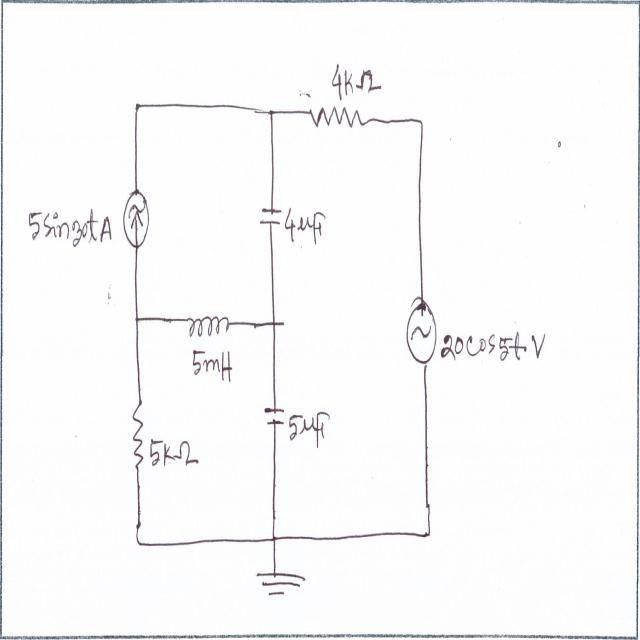 4kΩ
5sin30tA
4μF
5mH
20cos5t V
5kΩ
5μF